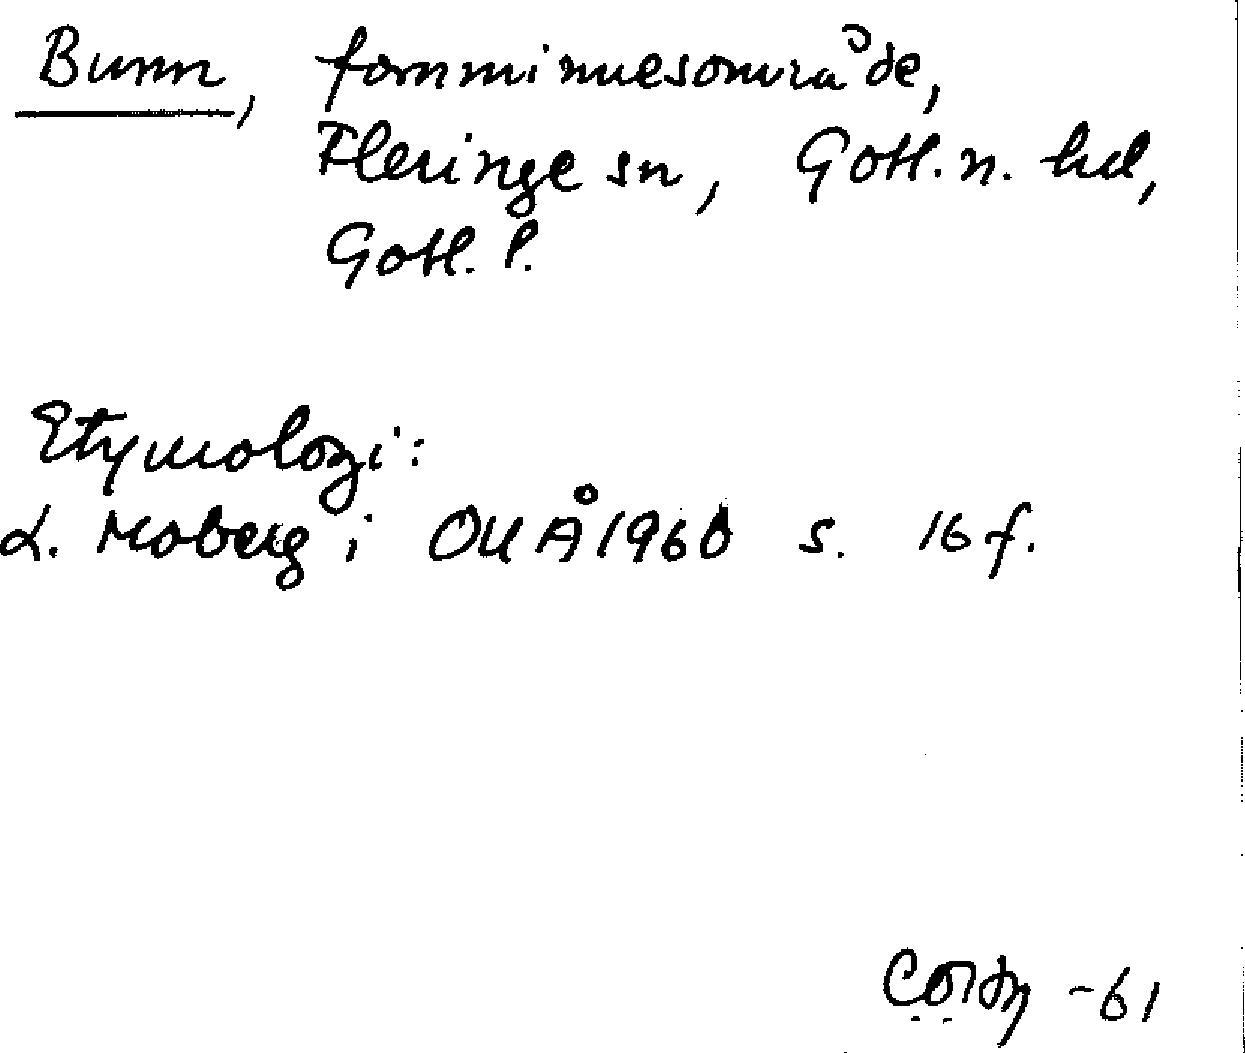 Bunn, fornminnesområde,
Fleringe sn, Gotl. n. hd,
Gotl. l.
Etymologi:
L. Moberg i OUÅ 1960 s. 16 f.
-61